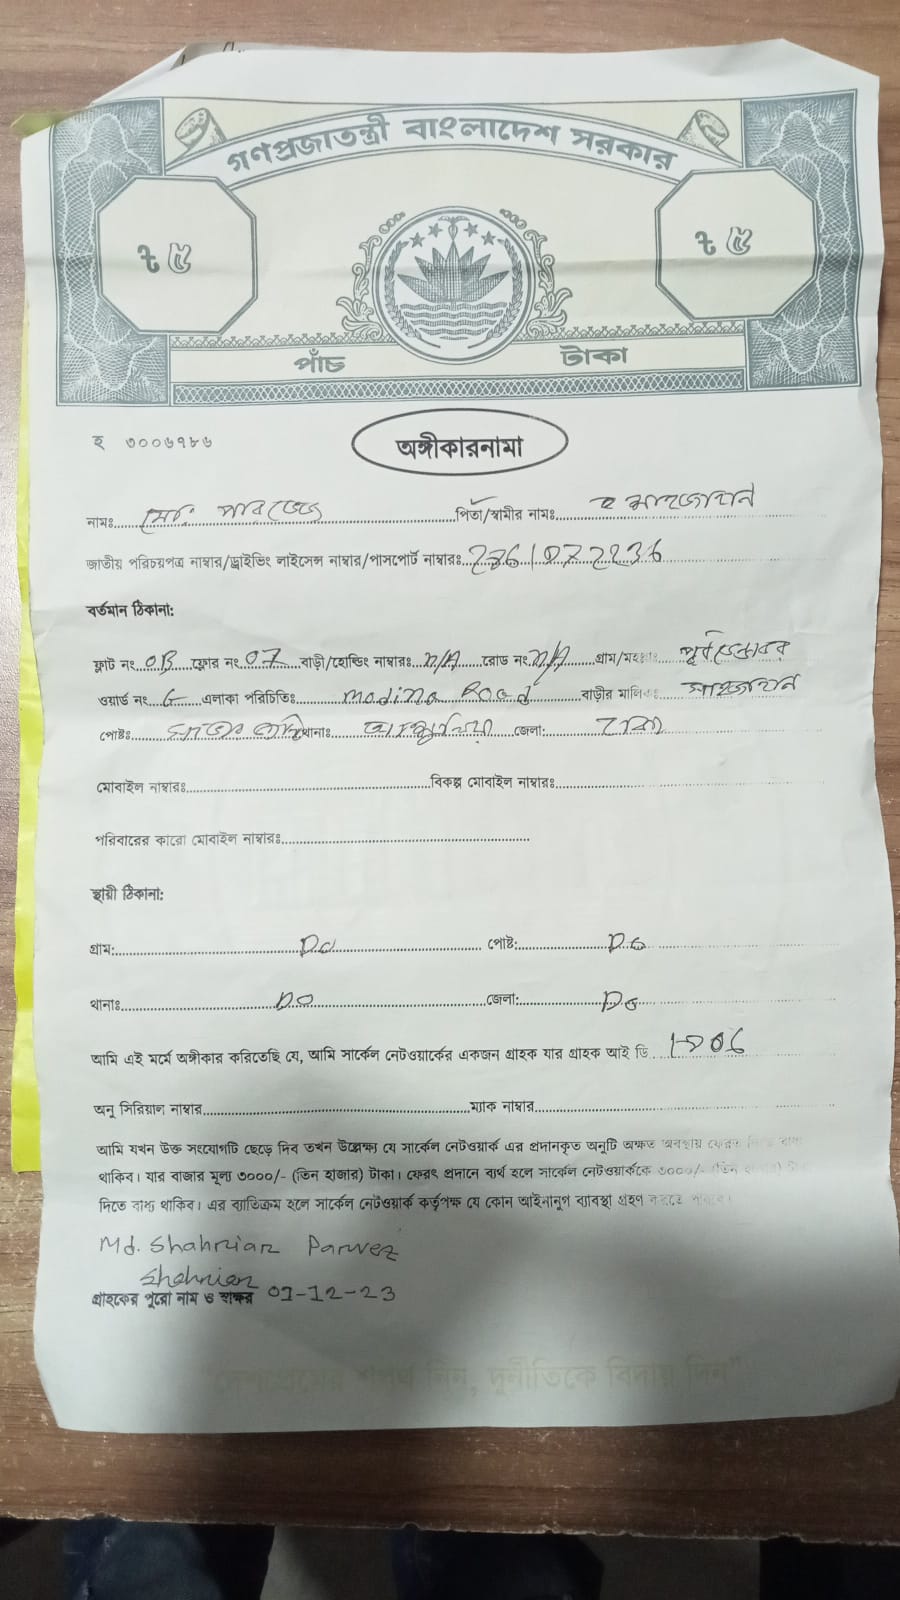 গণপ্রজাতন্ত্রী বাংলাদেশ সরকার
৳ ৫ ৳ ৫
পাঁচ টাকা
হ ৩০০৬৭৮৬
অঙ্গীকারনামা
নামঃ মোঃ পারভেজ পিতা/স্বামীর নামঃ শাহজাহান
জাতীয় পরিচয়পত্র নাম্বার/ড্রাইভিং লাইসেন্স নাম্বার/পাসপোর্ট নাম্বারঃ
বর্তমান ঠিকানা:
ফ্লাট নং 0B ফ্লোর নং 07 বাড়ী/হোল্ডিং নাম্বারঃ N/A রোড নং N/A গ্রাম/মহল্লাঃ
ওয়ার্ড নং 6 এলাকা পরিচিতিঃ Madina Road বাড়ীর মালিকঃ শাহজাহান
পোষ্টঃ থানাঃ জেলা: ঢাকা
মোবাইল নাম্বারঃ বিকল্প মোবাইল নাম্বারঃ
পরিবারের কারো মোবাইল নাম্বারঃ
স্থায়ী ঠিকানা:
গ্রাম: Do পোষ্ট: Do
থানাঃ Do জেলা: Do
আমি এই মর্মে অঙ্গীকার করিতেছি যে, আমি সার্কেল নেটওয়ার্কের একজন গ্রাহক যার গ্রাহক আই ডি
অনু সিরিয়াল নাম্বার ম্যাক নাম্বার
আমি যখন উক্ত সংযোগটি ছেড়ে দিব তখন উল্লেক্ষ্য যে সার্কেল নেটওয়ার্ক এর প্রদানকৃত অনুটি অক্ষত অবস্থায় ফেরত দিতে বাধ্য
থাকিব। যার বাজার মূল্য ৩০০০/- (তিন হাজার) টাকা। ফেরৎ প্রদানে ব্যর্থ হলে সার্কেল নেটওয়ার্ককে ৩০০০/- (তিন হাজার)
দিতে বাধ্য থাকিব। এর ব্যতিক্রম হলে সার্কেল নেটওয়ার্ক কর্তৃপক্ষ যে কোন আইনানুগ ব্যাবস্থা গ্রহণ করতে পারবে।
Md. Shahriar Parvez
Shahriar
গ্রাহকের পুরো নাম ও স্বাক্ষর 01-12-23
"দেশপ্রেমের শপথ নিন, দুর্নীতিকে বিদায় দিন"